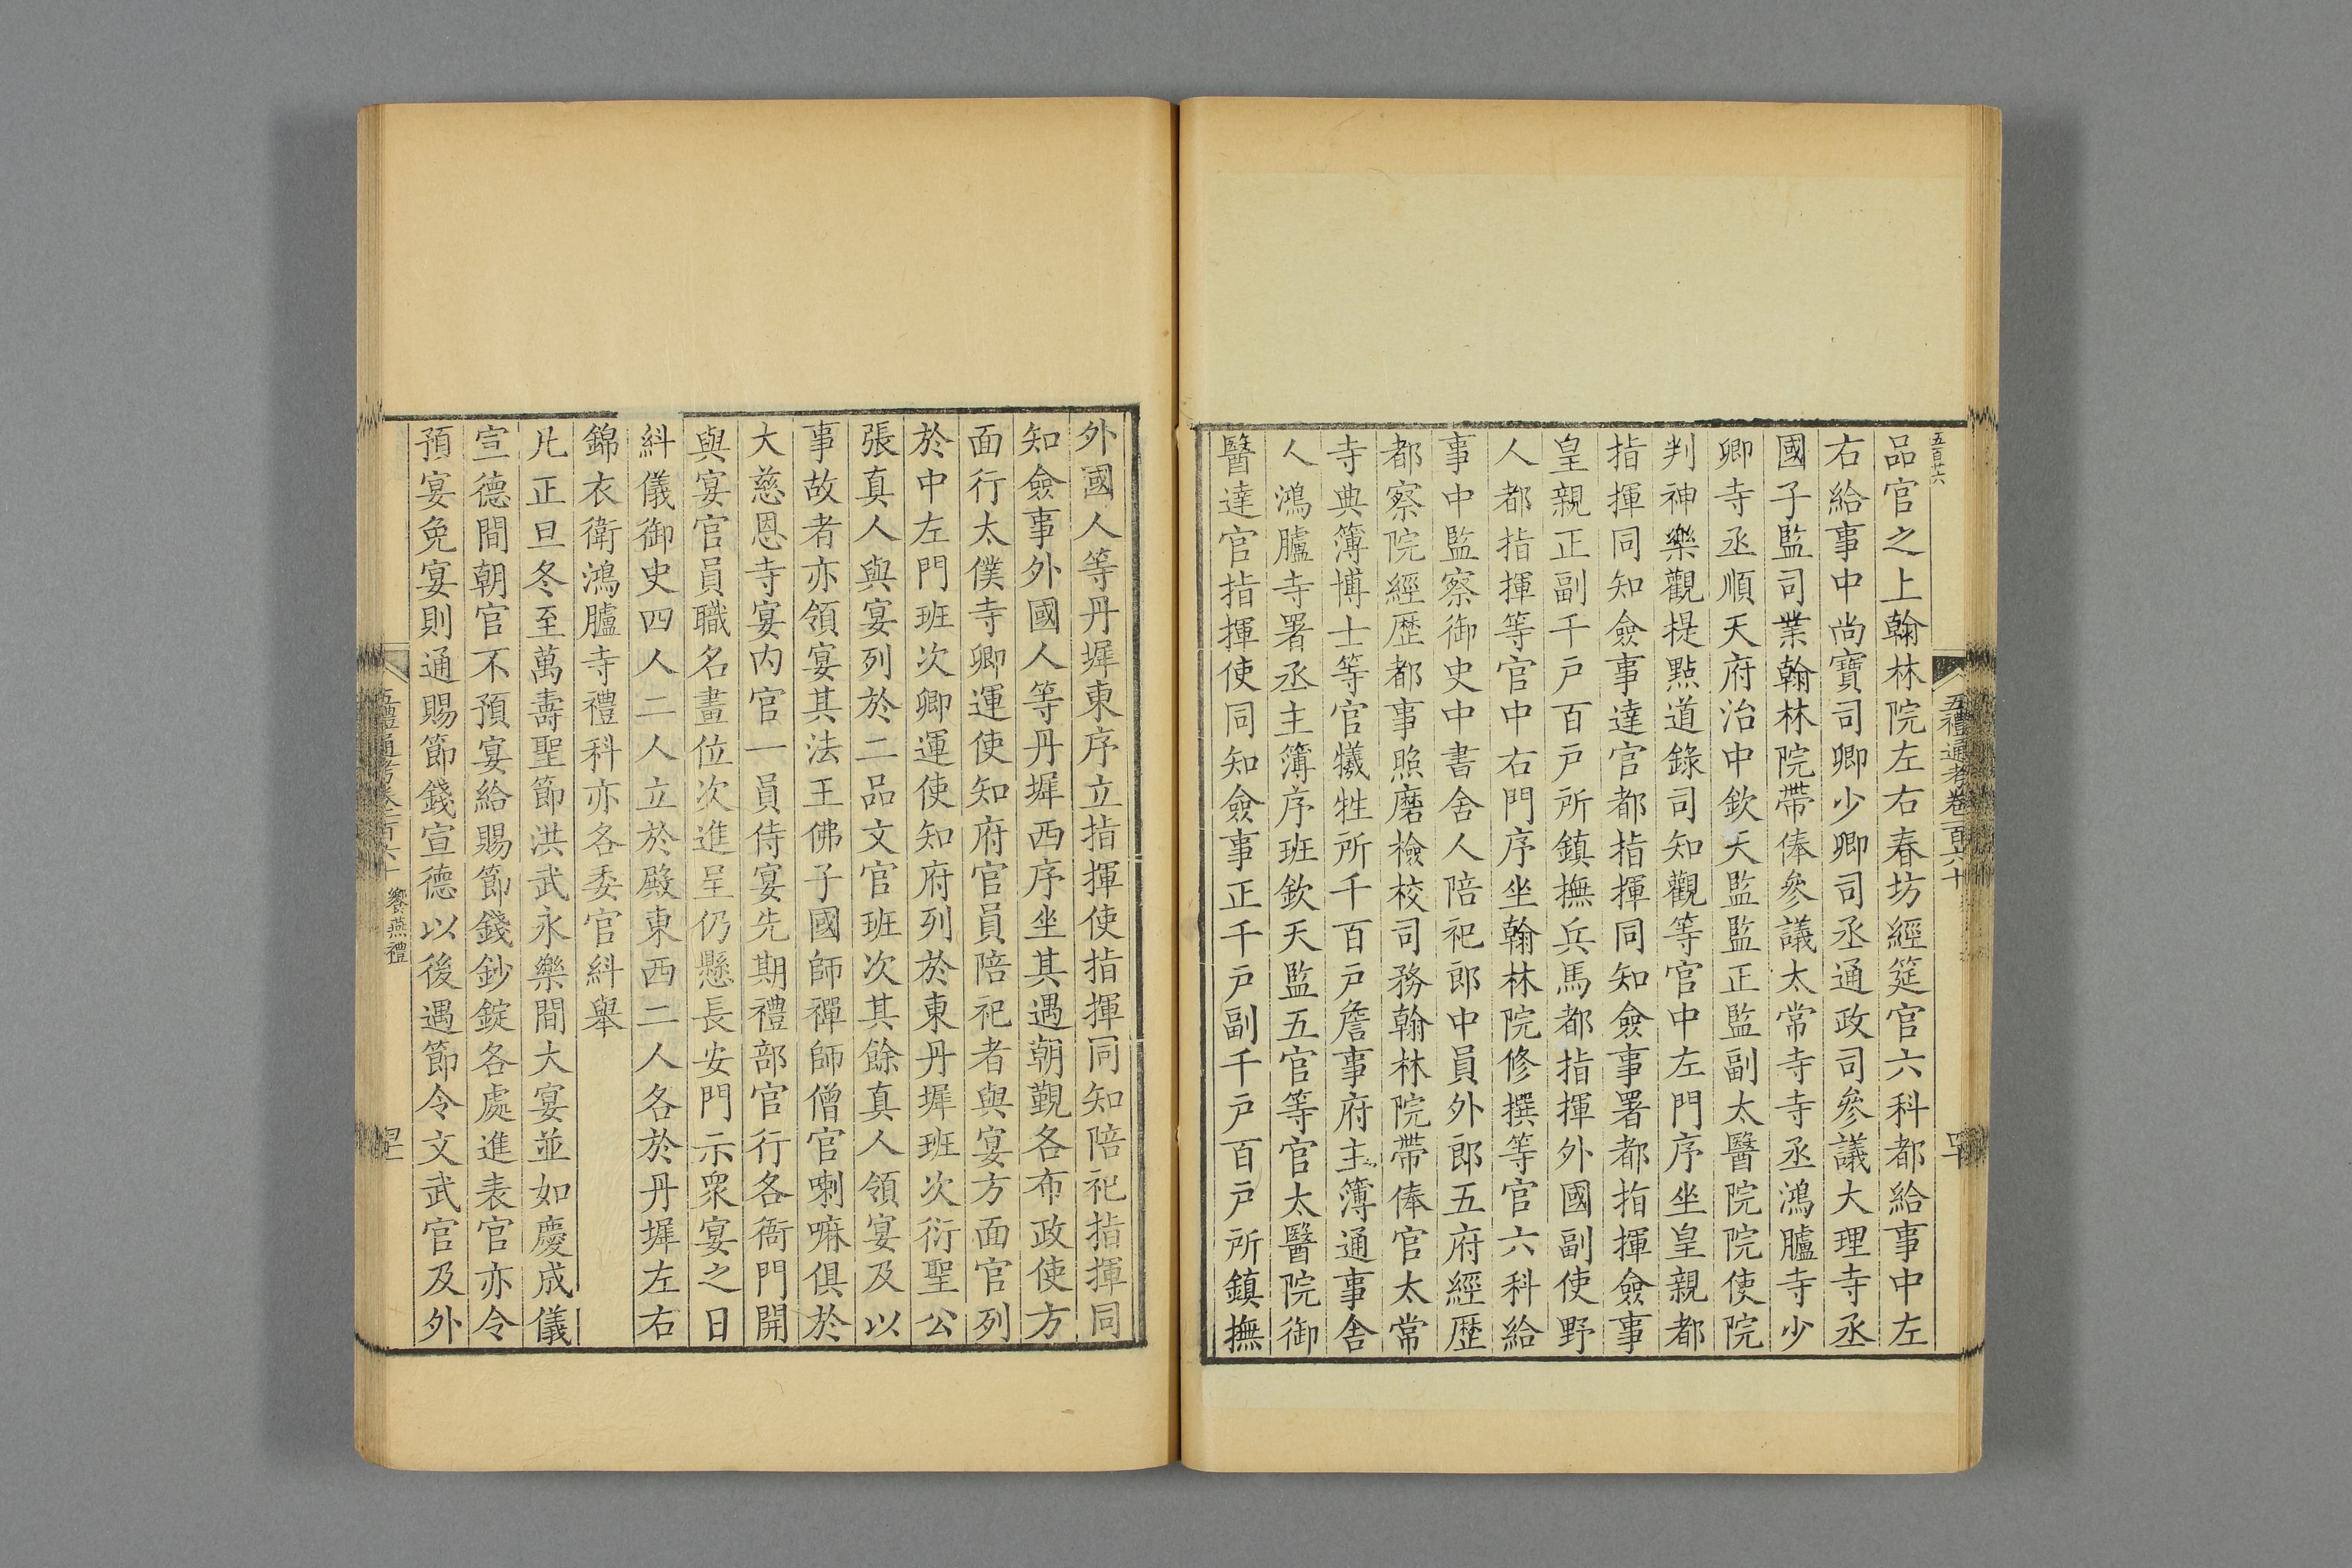 五百廿六
五禮通考卷一百六十
品官之上翰林院左右春坊經筵官六科都給事中左
右給事中尚寶司卿少卿司丞通政司參議大理寺丞
國子監司業翰林院帶俸參議太常寺寺丞鴻臚寺少
卿寺丞順天府治中欽天監監正監副太醫院院使院
判神樂觀提點道錄司知觀等官中左門序坐皇親都
指揮同知僉事達官都指揮同知僉事署都指揮僉事
皇親正副千戸百戸所鎮撫兵馬都指揮外國副使野
人都指揮等官中右門序坐翰林院修撰等官六科給
事中監察御史中書舍人陪祀郎中員外郎五府經歷
都察院經歷都事照磨檢校司務翰林院帶俸官太常
寺典簿博士等官犧牲所千百戸詹事府主簿通事舍
人鴻臚寺署丞主簿序班欽天監五官等官太醫院御
醫達官指揮使同知僉事正千戸副千戸百戸所鎮撫
外國人等丹墀東序立指揮使指揮同知陪祀指揮同
知僉事外國人等丹墀西序坐其遇朝覲各布政使方
面行太僕寺卿運使知府官員陪祀者與宴方面官列
於中左門班次卿運使知府列於東丹墀班次衍聖公
張真人與宴列於二品文官班次其餘真人領宴及以
事故者亦領宴其法王佛子國師禪師僧官喇嘛俱於
大慈恩寺宴內官一員侍宴先期禮部官行各衙門開
與宴官員職名畫位次進呈仍懸長安門示衆宴之日
糾儀御史四人二人立於殿東西二人各於丹墀左右
錦衣衛鴻臚寺禮科亦各委官糾舉
凡正旦冬至萬壽聖節洪武永樂間大宴並如慶成儀
宣德間朝官不預宴給賜節錢鈔錠各處進表官亦令
預宴免宴則通賜節錢宣德以後遇節令文武官及外
五禮通考卷一百六十
饗燕禮